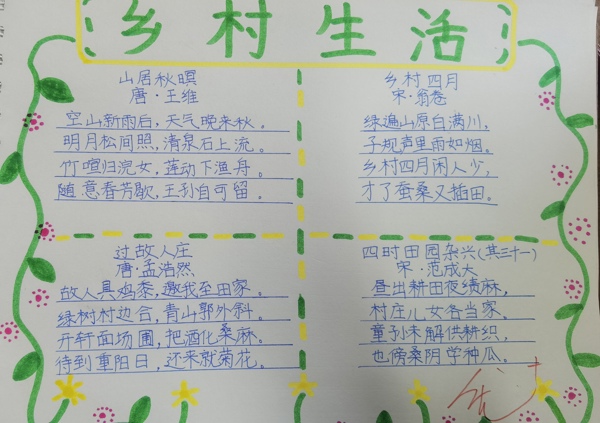 乡村生活
山居秋暝
唐·王维
空山新雨后，天气晚来秋。
明月松间照，清泉石上流。
竹喧归浣女，莲动下渔舟。
随意春芳歇，王孙自可留。
乡村四月
宋·翁卷
绿遍山原白满川，
子规声里雨如烟。
乡村四月闲人少，
才了蚕桑又插田。
过故人庄
唐·孟浩然
故人具鸡黍，邀我至田家。
绿树村边合，青山郭外斜。
开轩面场圃，把酒化桑麻。
待到重阳日，还来就菊花。
四时田园杂兴(其三十一)
宋·范成大
昼出耕田夜绩麻，
村庄儿女各当家。
童孙未解供耕织，
也傍桑阴学种瓜。
优+